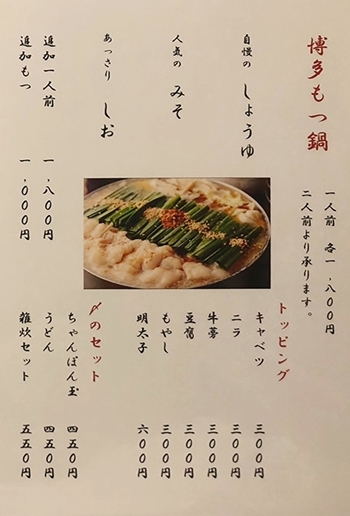 博多もつ鍋
一人前 各一、八〇〇円
二人前より承ります。
自慢の しょうゆ
人気の みそ
あっさり しお
追加一人前 一、八〇〇円
追加もつ 一、〇〇〇円
トッピング
キャベツ 三〇〇円
ニラ 三〇〇円
牛蒡 三〇〇円
豆腐 三〇〇円
もやし 三〇〇円
明太子 六〇〇円
〆のセット
ちゃんぽん玉 四五〇円
うどん 四五〇円
雑炊セット 五五〇円